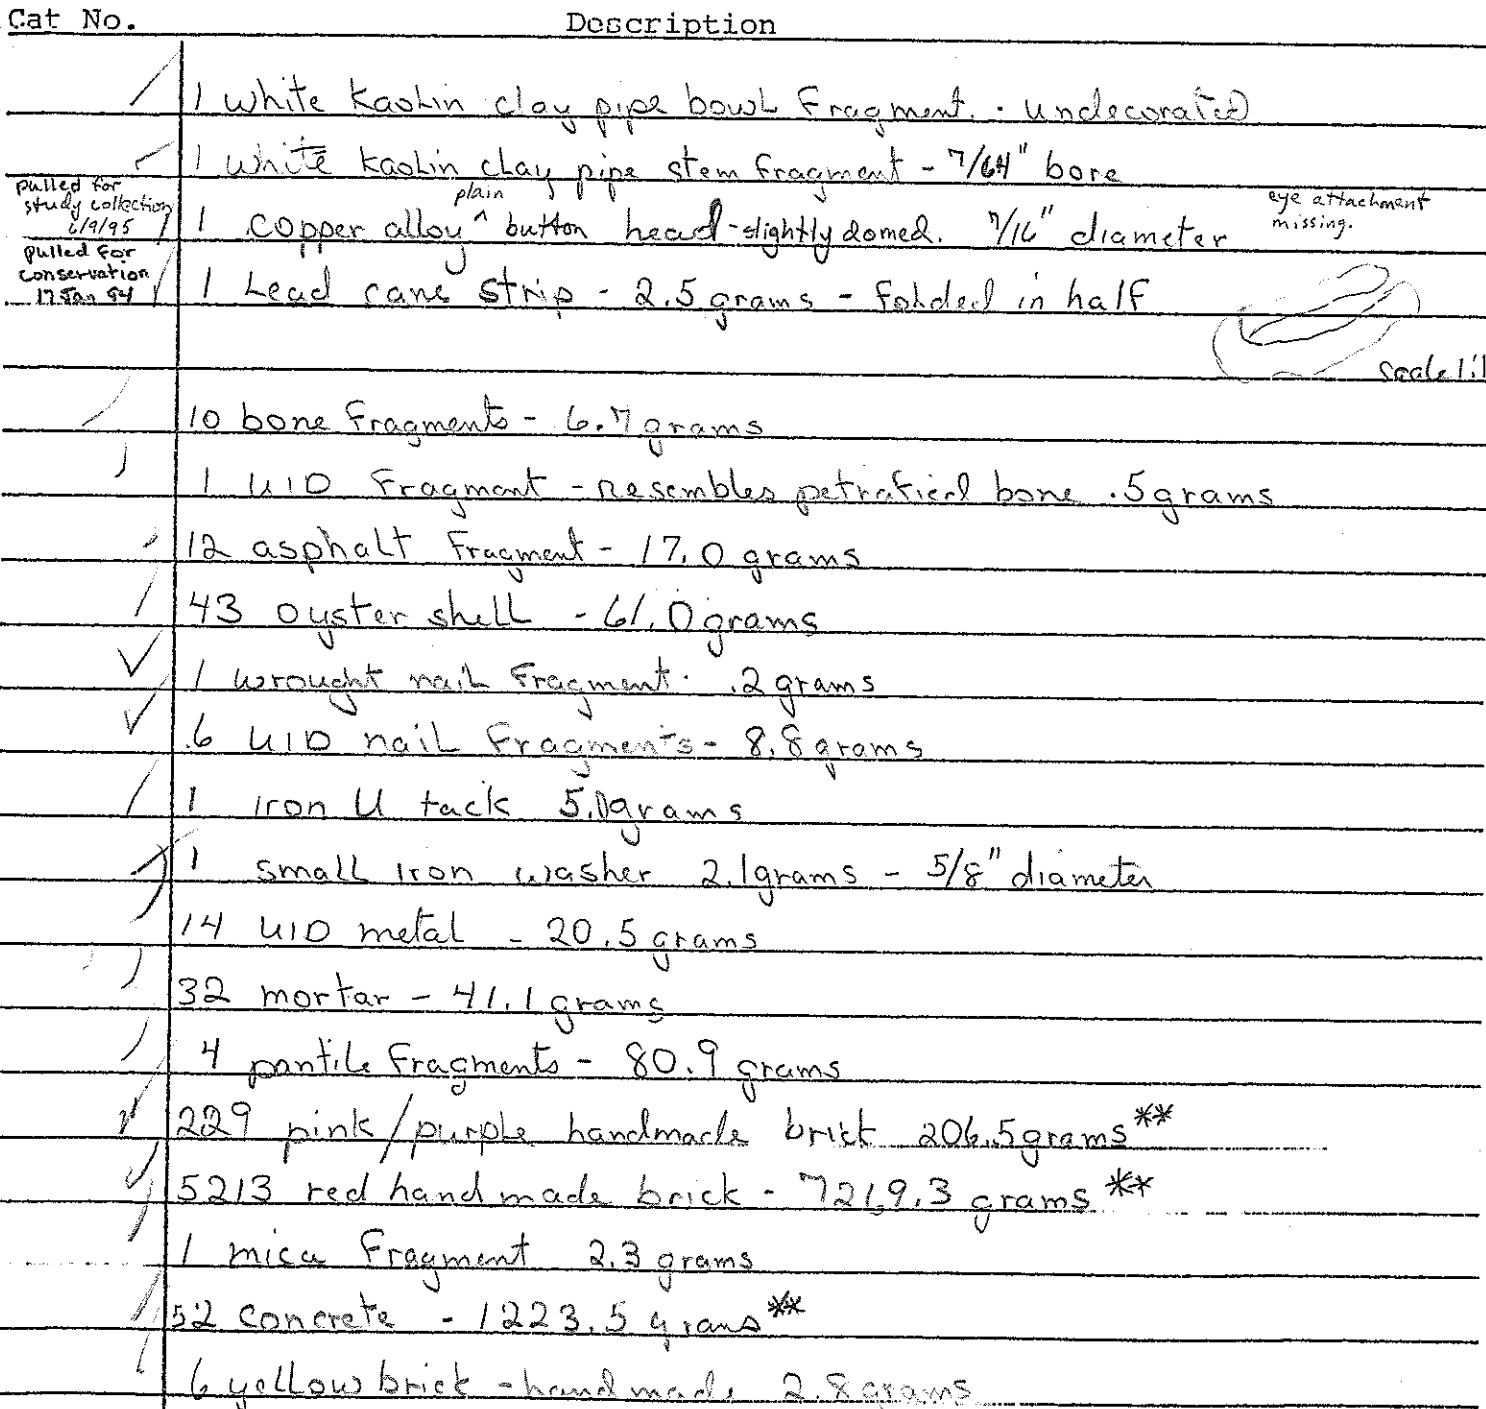 Cat No. Description
1 white kaolin clay pipe bowl Fragment. - undecorated
1 white kaolin clay pipe stem fragment - 7/64" bore
pulled for
study collection
6/9/95
1 copper alloy ^ plain button head - slightly domed. 7/16" diameter
eye attachment
missing.
pulled for
conservation
17 Jan 94
1 Lead came strip - 2.5 grams - folded in half
Scale 1:1
10 bone fragments - 6.7 grams
1 UID Fragment - Resembles petrafied bone .5 grams
12 asphalt Fragment - 17.0 grams
43 oyster shell - 61.0 grams
1 wrought nail Fragment. .2 grams
6 UID nail Fragments - 8.8 grams
1 iron U tack 5.0 grams
1 small iron washer 2.1 grams - 5/8" diameter
14 UID metal - 20.5 grams
32 mortar - 41.1 grams
4 pantile Fragments - 80.9 grams
229 pink/purple handmade brick 206.5 grams **
5213 red handmade brick - 7219.3 grams **
1 mica Fragment 2.3 grams
52 Concrete - 1223.5 grams **
6 yellow brick - handmade 2.8 grams